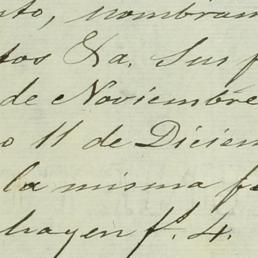 nto, nombram
tos &a. Sus f
de Noviembre
o 11 de Diciem
la misma f
hayen fs. 4.